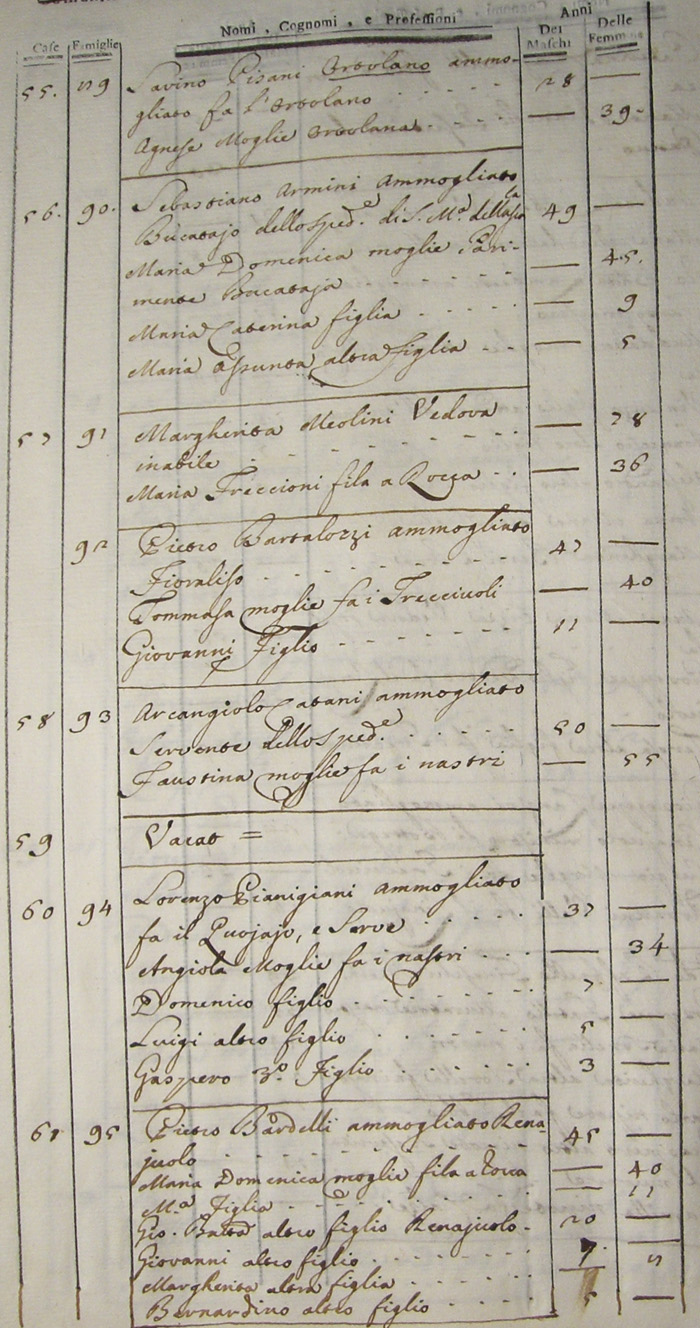 Nomi, Cognomi, e Professioni
Anni
Case Famiglie Dei Maschi Delle Femmine
55. 89 Savino Pisani Ortolano ammo- 28 —
gliato fa l'Ortolano
Agnese Moglie Ortolana — 39-
56. 90. Sebastiano Armini Ammogliato
Bucatajo dello Sped.e di S. M.a della Sca 49 —
Maria Domenica moglie Pari- — 45.
mente Bucataja
Maria Caterina figlia — 9
Maria Assunta altra figlia — 5
57 91 Margherita Meolini Vedova — 78
inabile
Maria Treccioni fila a Rocca — 36
92 Pietro Bartalozzi ammogliato 47 —
Fioraliso
Tommasa moglie fa i Trecciuoli — 40
Giovanni Figlio 11 —
58 93 Arcangiolo Catani ammogliato
Servente dello Sped.e 50 —
Faustina moglie fa i nastri — 55
59 Vacat =
60 94 Lorenzo Pianigiani ammogliato 37 —
fa il Quojajo, e Serve
Angiola Moglie fa i nastri — 34
Domenico figlio 7 —
Luigi altro figlio 5 —
Gaspero 3.o Figlio 3 —
61 95 Pietro Bardelli ammogliato Rena- 45 —
juolo
Maria Domenica moglie fila a Rocca — 40
M.a Figlia — 11
Gio. Batta altro figlio Renajuolo 20 —
Giovanni altro figlio 7
Margherita altra figlia — 5
Bernardino altro figlio 5 —